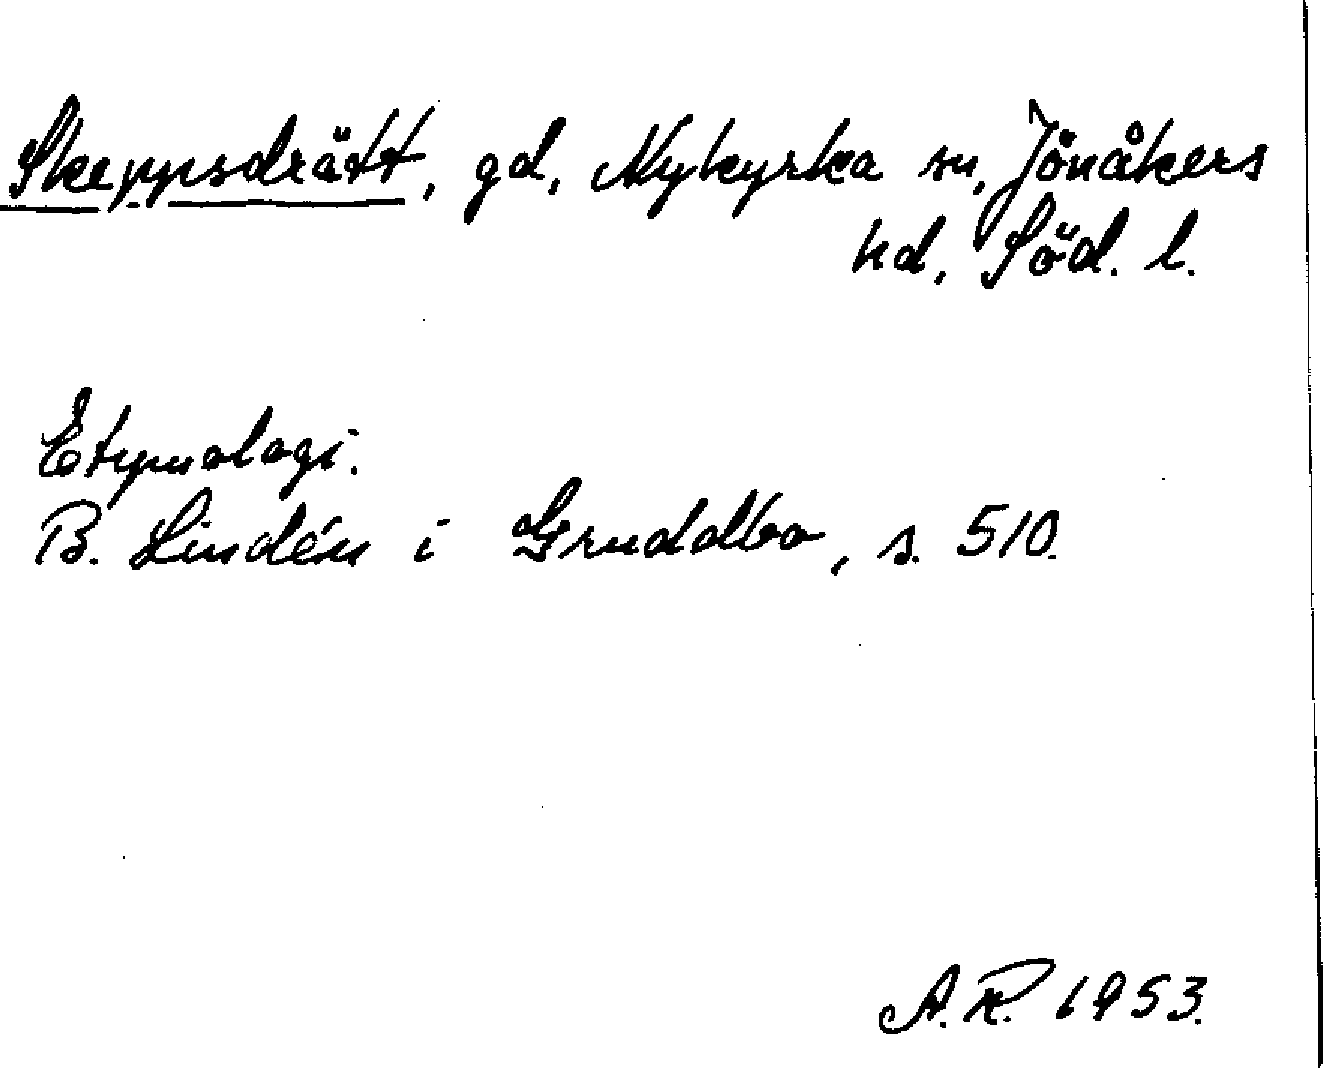 Skeppsdrätt, gd, Nykyrka sn, Jönåkers
hd, Söd. l.
Etymologi.
B. Lindén i Gruddbo, s. 510.
A. R. 1953.